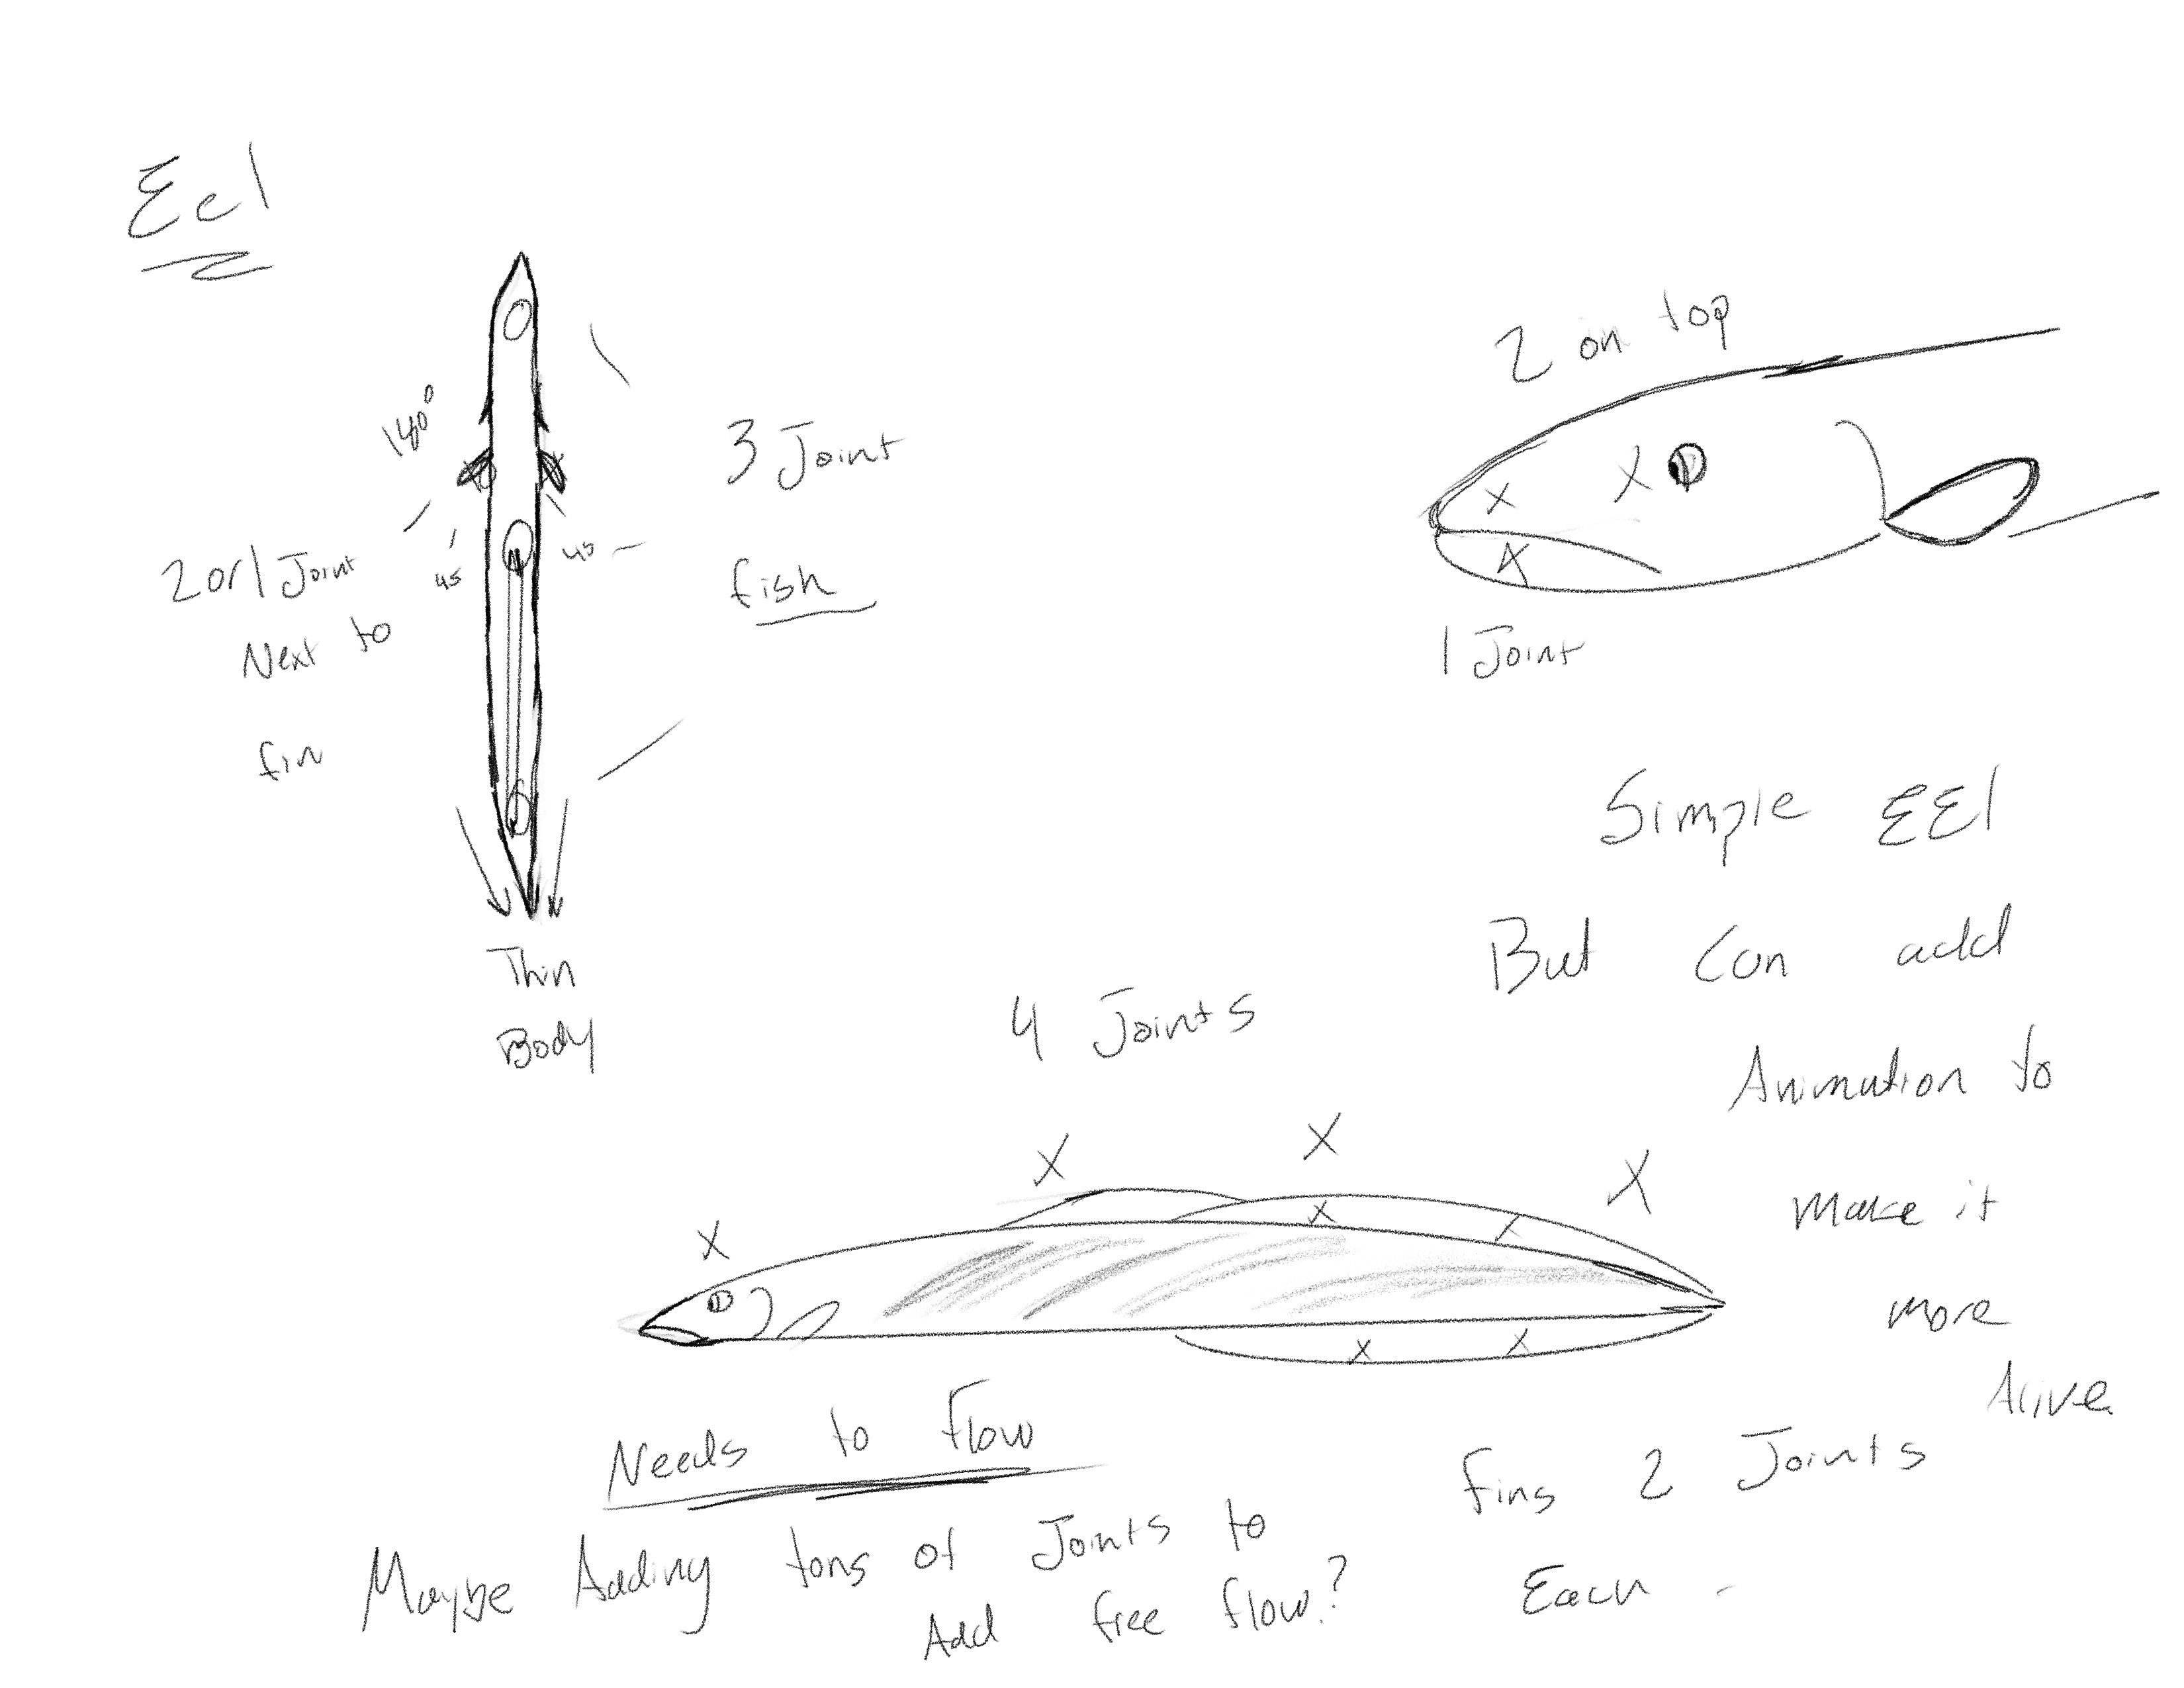 Eel
140°
45
45
2 or 1 Joint
Next to
fin
3 Joint
fish
Thin
Body
2 on top
x
X
x
1 Joint
Simple EEl
But Can add
Animation to
Make it
more
Alive.
4 Joints
X
X
X
X
x
x
x
x
Needs to Flow
Maybe Adding tons of Joints to
Add free flow?
fins 2 Joints
Each -